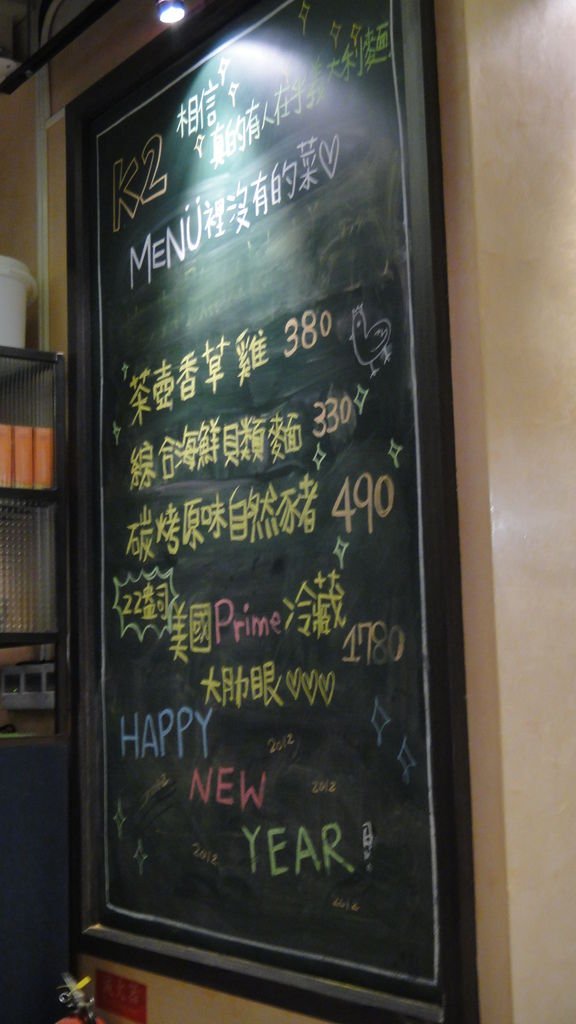 K2
相信
真的有人在乎義大利麵
MENÜ裡沒有的菜♡
茶壺香草雞 380
綜合海鮮貝類麵 330
碳烤原味自然豬 490
22盎司
美國Prime冷藏
大肋眼♡♡♡ 1780
HAPPY
2012
NEW
2012
2012
YEAR!
2012
2012
滅火器